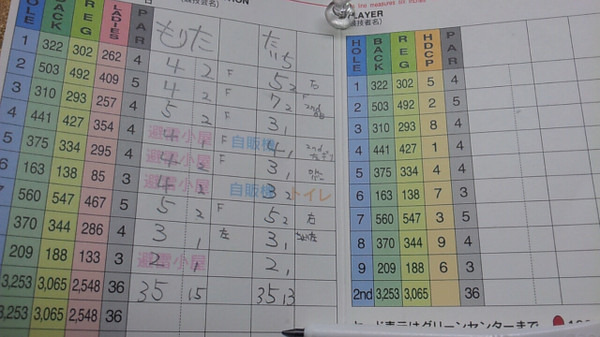 HOLE BACK REG LADIES PAR もりた だいち
1 322 302 262 4 4 2 F 5 2
2 503 492 409 5 4 2 F 7 2
3 310 293 257 4 5 2 F 3 1
4 441 427 354 4 避雷小屋 自販機 4 1 F 4 1
5 375 334 295 4 避雷小屋 4 2 F 3 1
6 163 138 85 3 避雷小屋 自販機 トイレ 4 2 3 2
7 560 547 467 5 5 2 F 5 2 右
8 370 344 286 4 3 1 左 3 1
209 188 133 3 避雷小屋 2 1 2 1
3,253 3,065 2,548 36 35 15 35 13
3,253 3,065 2,548 36
PLAYER
(競技者名)
HOLE BACK REG HDCP PAR
1 322 302 5 4
2 503 492 2 5
3 310 293 8 4
4 441 427 1 4
5 375 334 4 4
6 163 138 7 3
7 560 547 3 5
8 370 344 9 4
9 209 188 6 3
2nd 3,253 3,065 36
ード表示はグリーンセンターまで